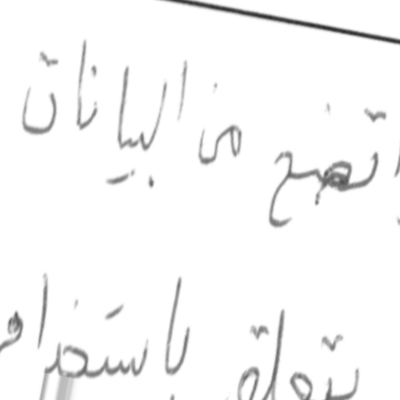 اتضح من البيانات
يتعلق باستخدام